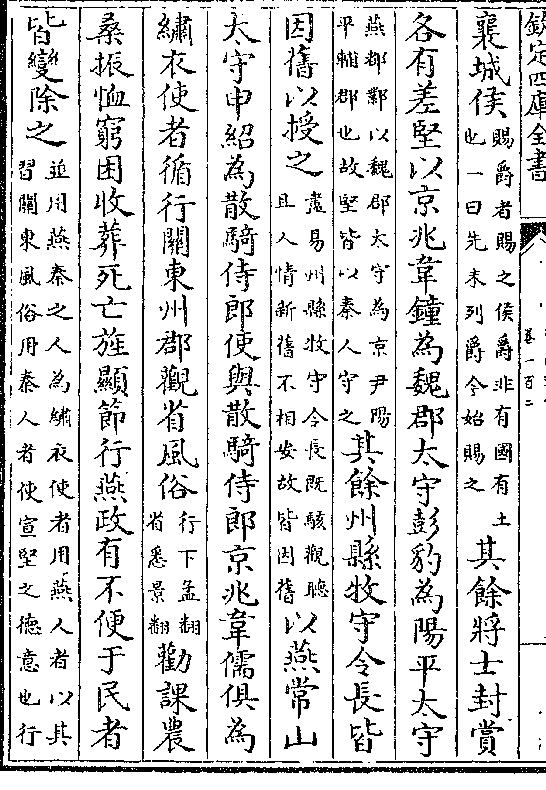 欽定四庫全書
卷一百二
襄城侯賜爵者賜之侯爵非有國有土也一曰先未列爵今始賜之其餘將士封賞
各有差堅以京兆韋鐘為魏郡太守彭豹為陽平太守
燕都鄴以魏郡太守為京尹陽平輔郡也故堅皆以秦人守之其餘州縣牧守令長皆
因舊以授之盡易州縣牧守令長既駭觀聽且人情新舊不相安故皆因舊以燕常山
太守申紹為散騎侍郎使與散騎侍郎京兆韋儒俱為
繡衣使者循行關東州郡觀省風俗行下孟翻省悉景翻勸課農
桑振恤窮困收葬死亡旌顯節行燕政有不便于民者
皆變除之並用燕秦之人為繡衣使者用燕人者以其習關東風俗用秦人者使宣堅之德意也行